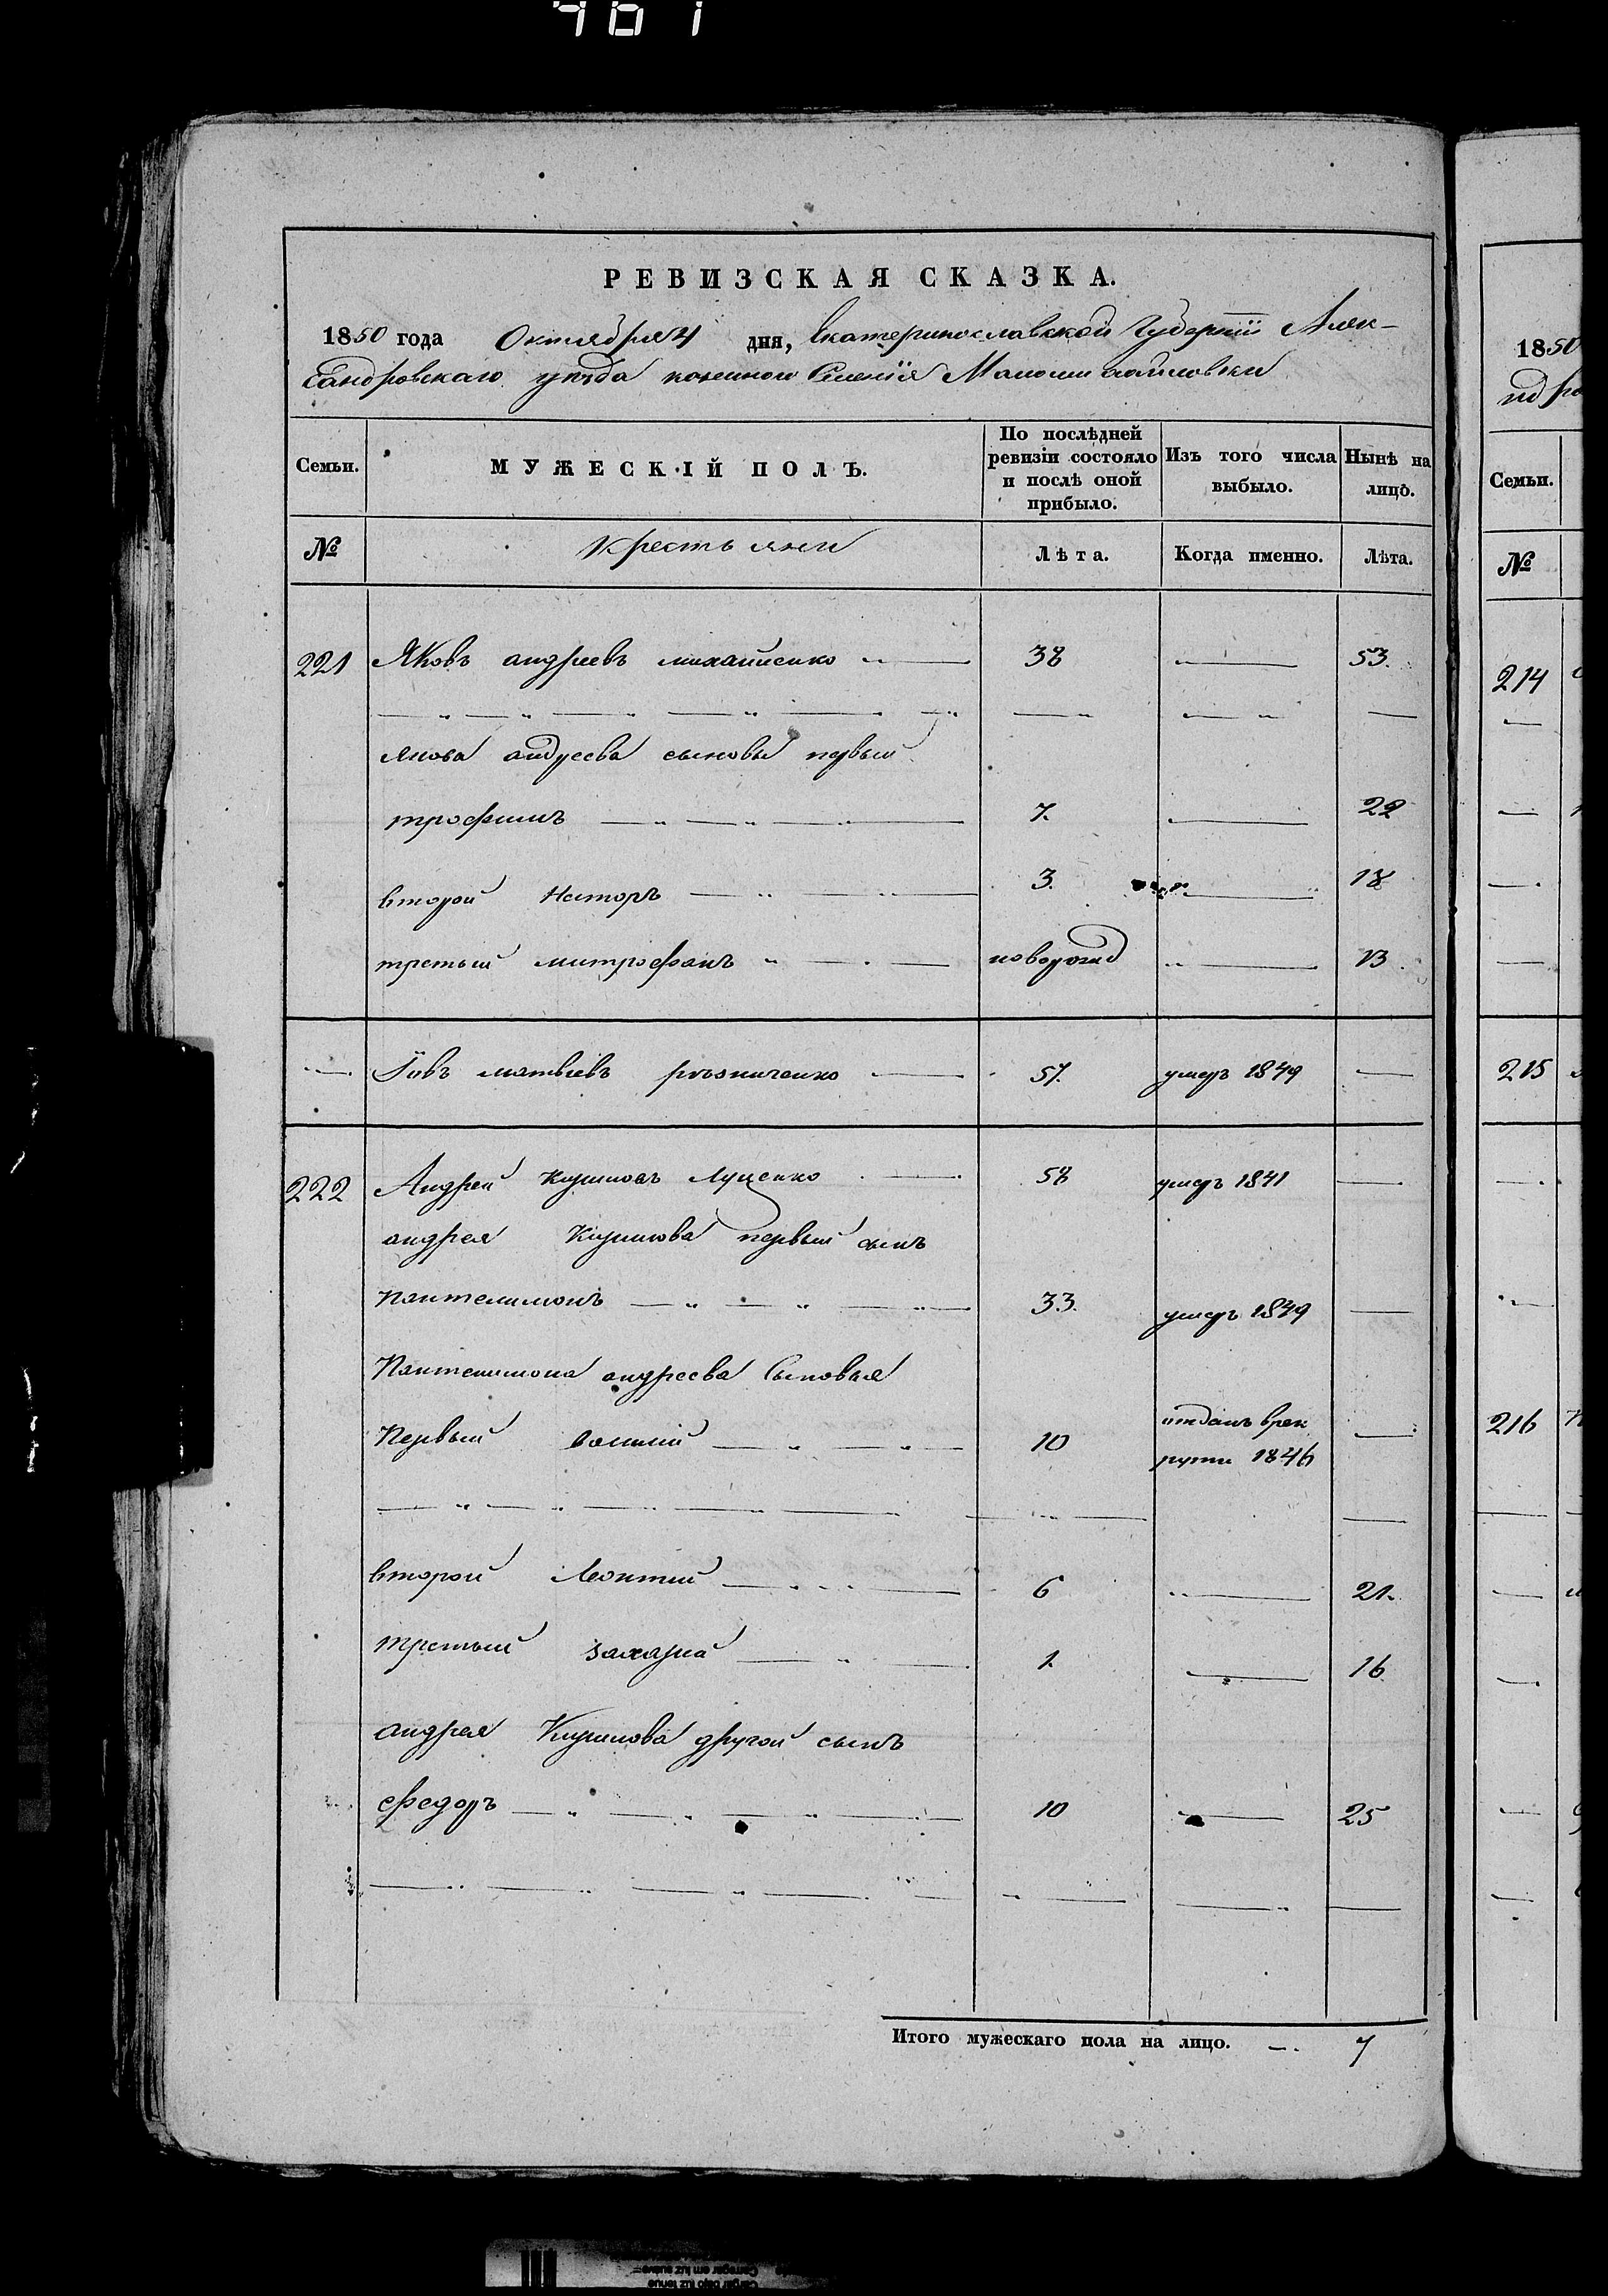 РЕВИЗСКАЯ СКАЗКА.
1850 года Октября 4 дня, Екатеринославской Губернїи Алек-
сандровскаго уезда казенного Селенїя Маломихайловки
Семьи. МУЖЕСКІЙ ПОЛЪ. По послѣдней ревизіи состояло и послѣ оной прибыло. Изъ того числа выбыло. Нынѣ на лицо.
№ Крестьяни Лѣта. Когда именно. Лѣта.
221 Яковъ андреевъ михайленко 38 53.
якова андреева сыновья первый
трофимъ 7. 22
второй Несторъ 3. 18
третьий митрофанъ новорожд 13
Їовъ матвѣевъ резниченко 57. умеръ 1849
222 Андрей Кириловъ Луценко 58 умеръ 1841
андрея Кирилова первый сынъ
пантелимонъ 33. умеръ 1849
Пантелимона андреева Сыновья
Первый 10 отданъ врек
руты 1846
второй Леонтий 6 21.
третьий захарий 1. 16
андрея Кирилова другой сынъ
федоръ 10 25
Итого мужескаго пола на лицо. 7
1850
Семьи.
№
214
215
216